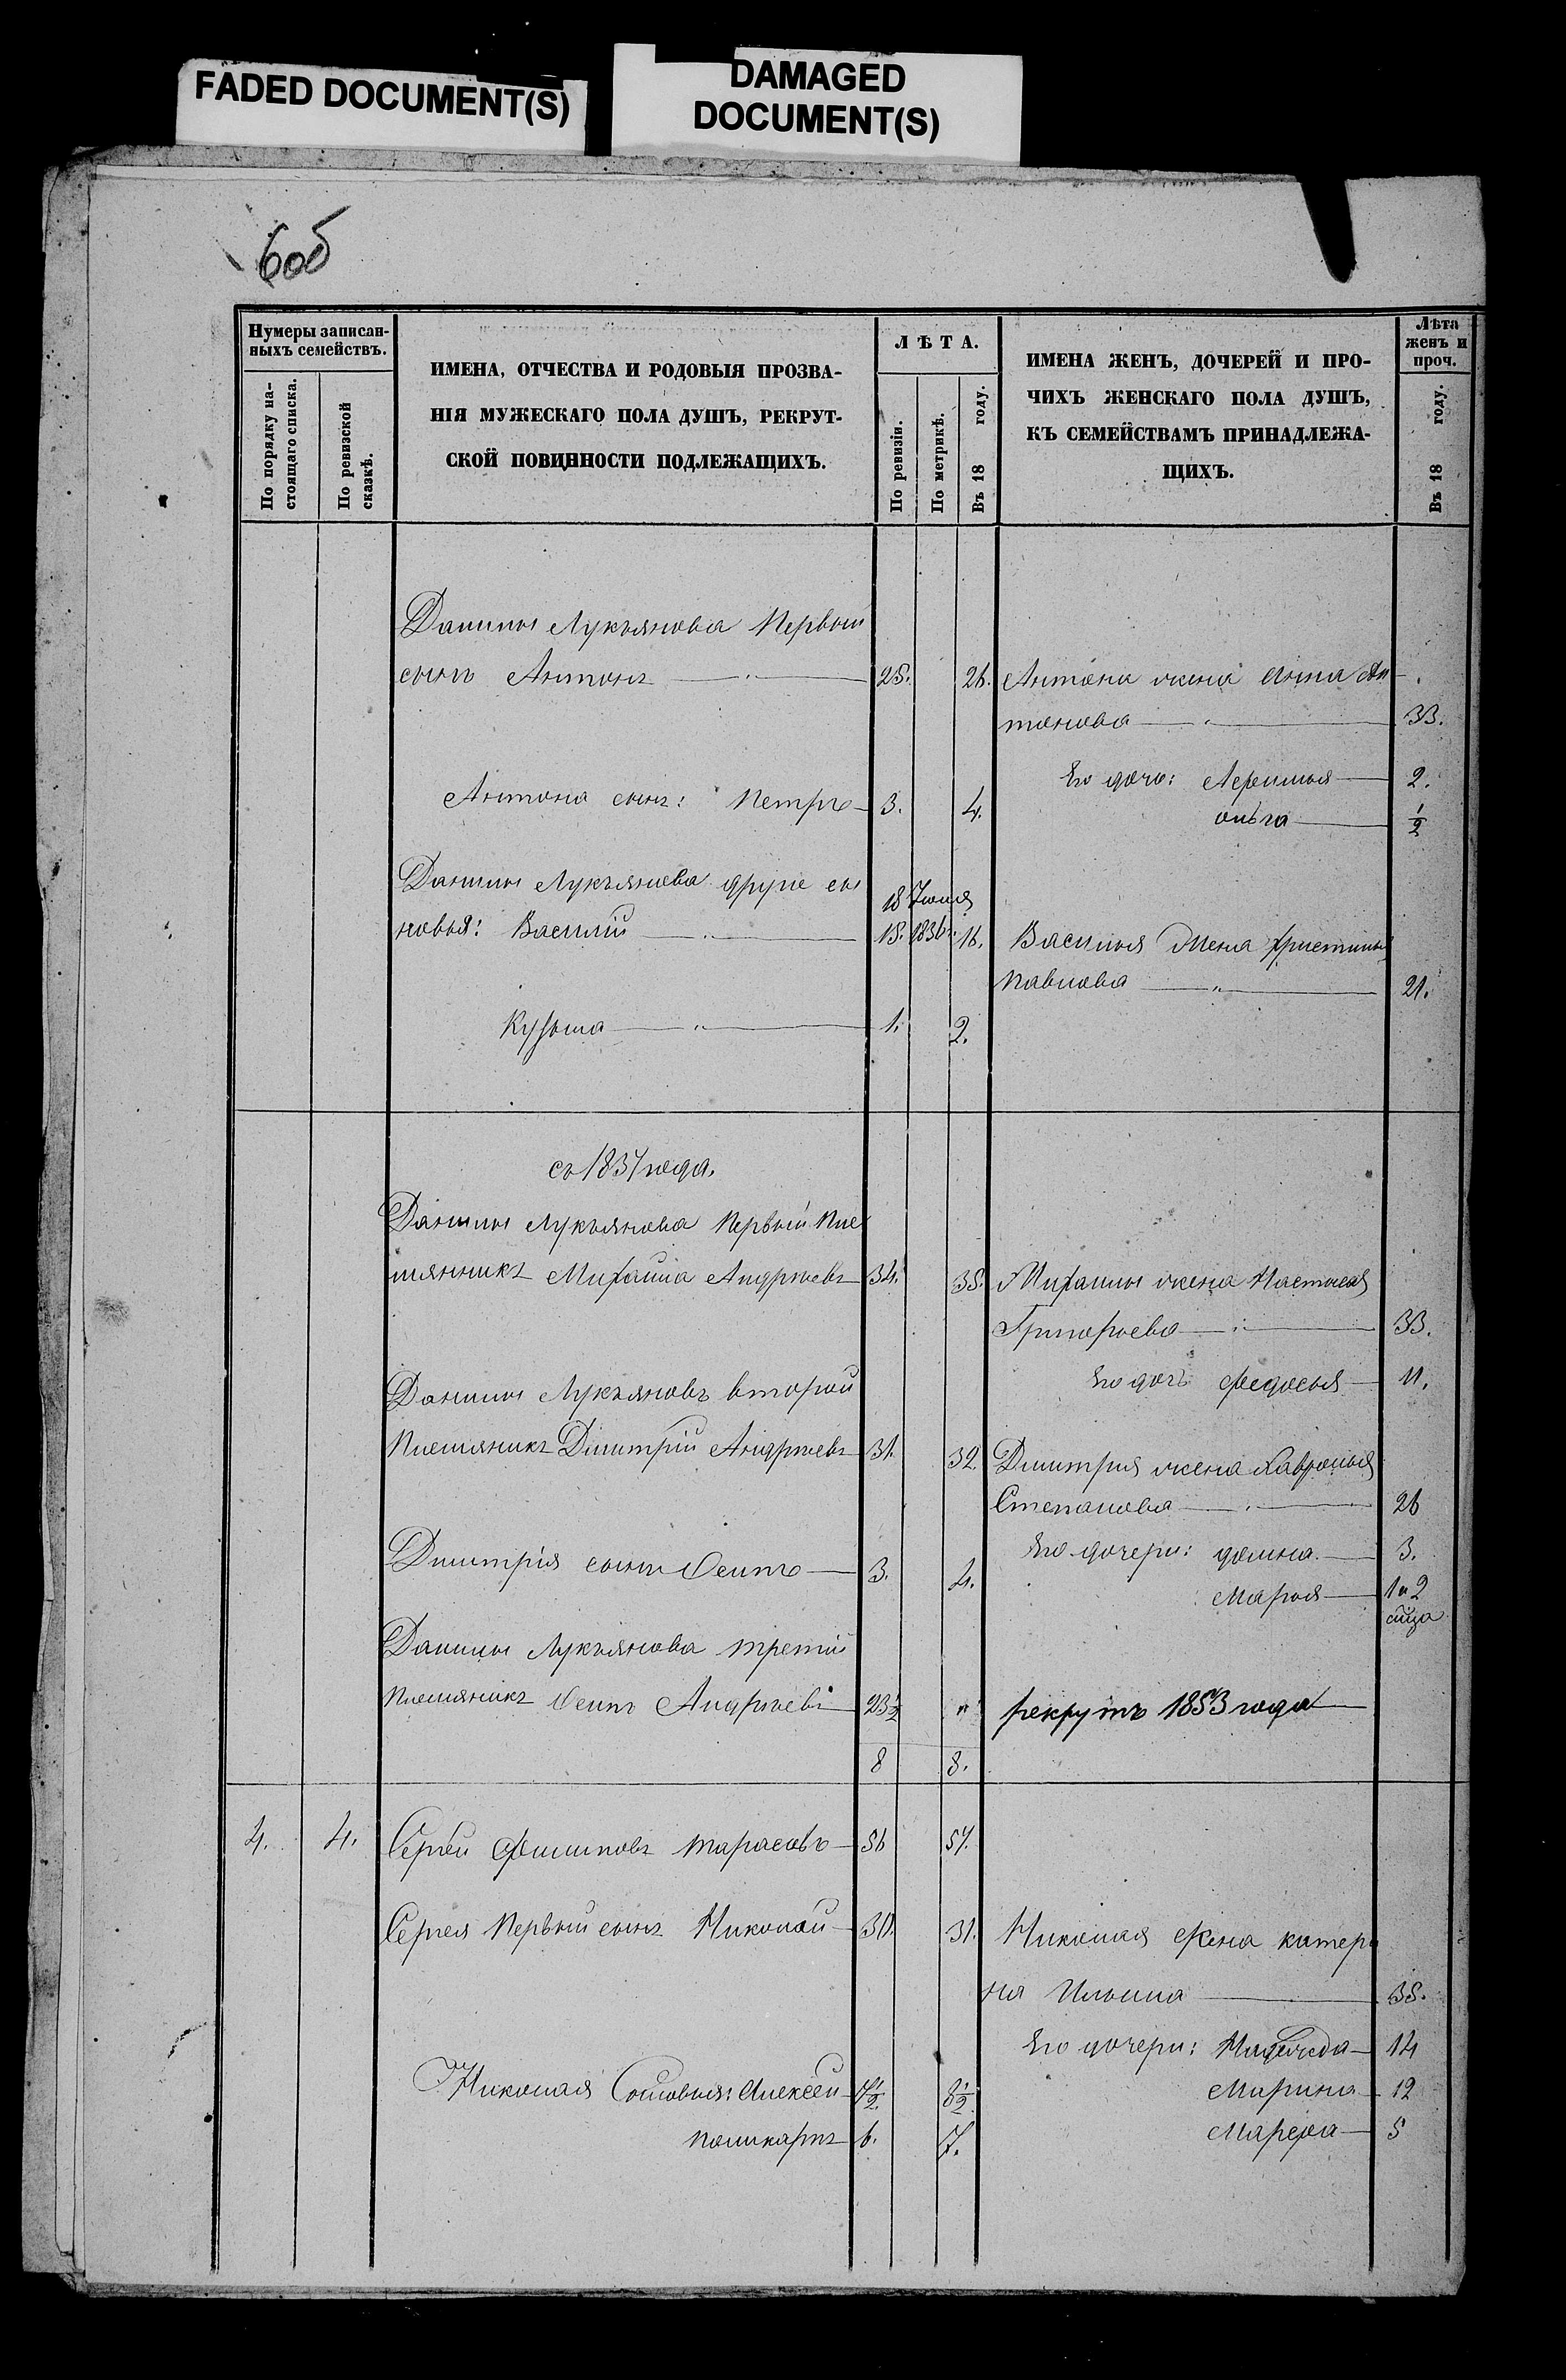 FADED DOCUMENT(S)
DAMAGED
DOCUMENT(S)
6об
Нумеры записан-
ныхъ семействъ.
По порядку на-
стоящаго списка.
По ревизской
сказкѣ.
ИМЕНА, ОТЧЕСТВА И РОДОВЫЯ ПРОЗВА-
НІЯ МУЖЕСКАГО ПОЛА ДУШЪ, РЕКРУТ-
СКОЙ ПОВИННОСТИ ПОДЛЕЖАЩИХЪ.
ЛѢТА.
По ревизіи.
По метрикѣ.
Въ 18 году.
ИМЕНА ЖЕНЪ, ДОЧЕРЕЙ И ПРО-
ЧИХЪ ЖЕНСКАГО ПОЛА ДУШЪ,
КЪ СЕМЕЙСТВАМЪ ПРИНАДЛЕЖА-
ЩИХЪ.
Лѣта
женъ и
проч.
Въ 18 году.
Данилы Лукъянова Первый
сынъ Антонъ 25. 26. Антона жена Анна Ан
тонова 33.
Его дочь: 2.
Антона сынъ: Петръ 3. 4.
ольга ½
Данилы Лукъянова другіе сы
новья: Василій 15. 18 Іюля 1836 г. 16. Василья Жена Христинья
Павлова 21.
Кузьма 1. 2.
съ 1837 года.
Данилы Лукъянова Первый Пле
мянникъ Михайла Андреевъ 34. 35. Михайлы жена Настасья
Григорьева 33.
Его дочь Федосья 11.
Данилы Лукъяновъ второй
Племяникъ Димитрій Андреевъ 31. 32. Димитрия жена Хавронья
Степанова 26
Димитрія сынъ Осипъ 3. 4.
Его дочери: домна. 3.
Марья 1 и 2
Данилы Лукъянова третій
Племяникъ Осипъ Андреевъ 23½ " рекрутъ 1853 года
8 8.
4. 4. Сергѣй Филиповъ Тарасовъ 56 57.
Сергея Первый сынъ Николай 30. 31. Николая Жена катери
на Ильина 35.
Его дочери: Надежда 14
Николая Сыновья: Алексѣй 7½. 8½ Марина 12
поликарпъ 6. 7. Марфа 5